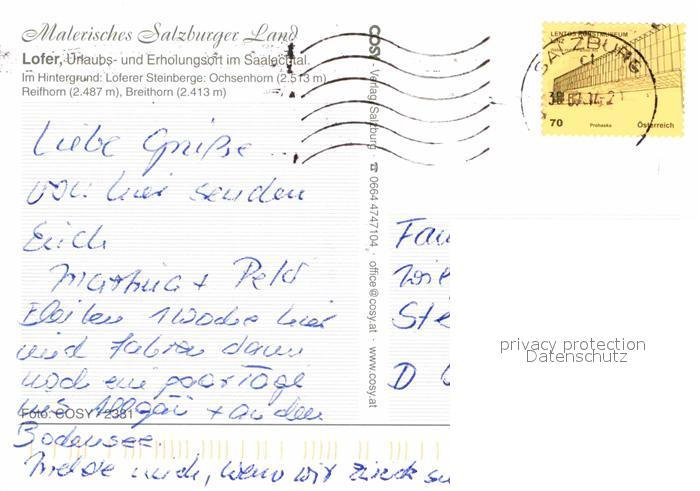 Malerisches Salzburger Land
Lofer, Urlaubs- und Erholungsort im Saalachtal.
Im Hintergrund: Loferer Steinberge: Ochsenhorn (2.513 m)
Reifhorn (2.487 m), Breithorn (2.413 m)
Liebe Grüße
von hier senden
Euch
Martina + Peter
Bleiben 1 Woche hier
und fahren dann
noch ein paar Tage
ins Allgäu + an den
Foto: COSY 2381
Bodensee.
Melde mich, wenn wir zurück
COSY Verlag, Salzburg · ☎ 0664 4747104 · office@cosy.at · www.cosy.at
LENTOS KUNSTMUSEUM
SALZBURG
70
Prohaska
Österreich
Fam
Ste
D
privacy protection
Datenschutz